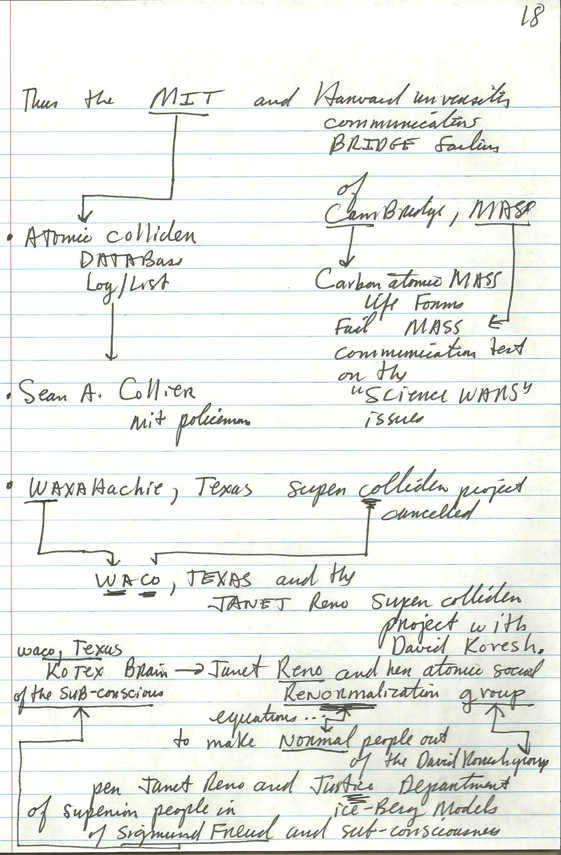 18
Thus the MIT and Harvard university
communication
BRIDGE failing
of
CamBridge, MASS
• Atomic collider
DATABase
Log/List
Carbon atomic MASS
life Forms
Fail MASS
communication test
on the
"Science WARS"
issues
• Sean A. Collier
mit policeman
• WAXAHachie, Texas super collider project
cancelled
WACO, TEXAS and the
JANET Reno super collider
project with
David Koresh.
waco, Texas
KoTex Brain → Janet Reno and her atomic social
of the SUB-conscious RENORmalization group
equations...
to make Normal people out
of the David Koresh group
per Janet Reno and Justice Department
of superior people in ice-Berg Models
of Sigmund Freud and sub-consciousness